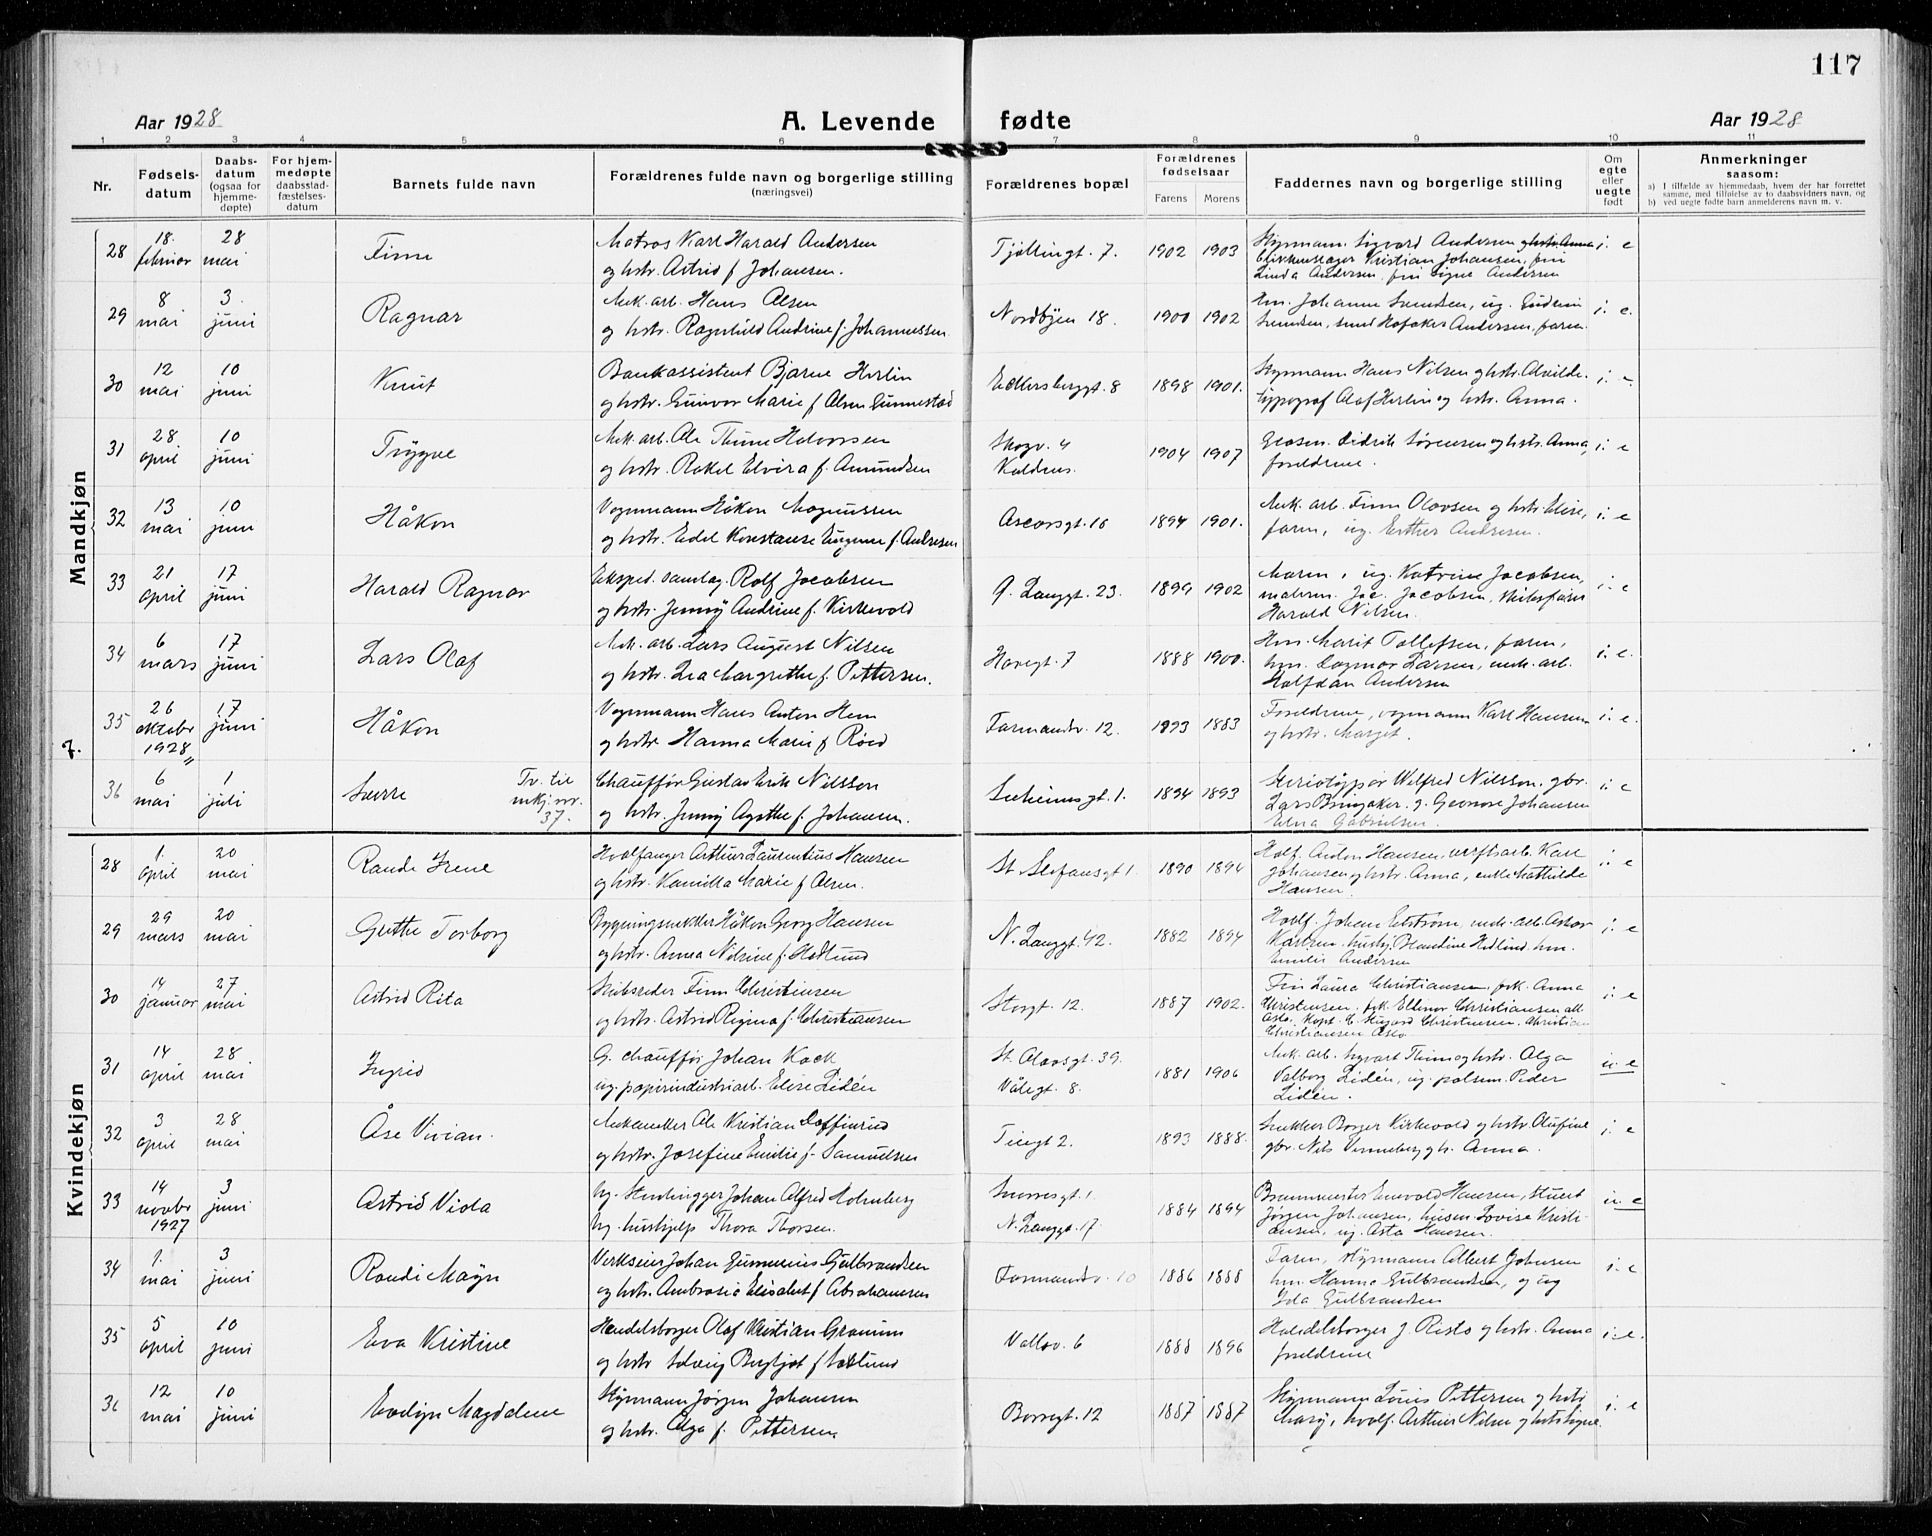 117
Aar 1928
A. Levende fødte
Aar 1928
1 2 3 4 5 6 7 8 9 10 11
Nr.
Fødsels-
datum
Daabs-
datum
(ogsaa for
hjemme-
døpte)
For hjem-
medøpte
daabsstad-
fæstelses-
datum
Barnets fulde navn
Forældrenes fulde navn og borgerlige stilling
(næringsvei)
Forældrenes bopæl
Forældrenes
fødselsaar
Farens Morens
Faddernes navn og borgerlige stilling
Om
egte
eller
uegte
født
Anmerkninger
saasom:
a) I tilfælde av hjemmedaab, hvem der har forrettet
samme, med tilføielse av to daabsvidners navn, og
b) ved uegte fødte barn anmelderens navn m. v.
Mandkjøn
28 18. februar 28 mai Finn
Matros Karl Harald Andersen
og hstr. Astrid f. Johansen.
Tjøllingt. 7. 1902 1903
Styrmann Sigvard Andersen og hstr. Anna
Kristian Johansen, frk.
Linda Andersen, frk. Signe Andersen
i. e
29 8 mai 3. juni Ragnar
Mek. arb. Hans Olsen
og hstr. Ragnhild Andrine f. Johannessen
Nordbyen 18. 1900 1902
Hm. Johanne Svendsen, ug.
Svendsen, Andersen, faren.
i. e.
30 12 mai 10 juni Knut
Bankassistent Bjarne Herlin
og hstr. Gunvor Marie f. Olsen Gunnestad
8 1898 1901.
Styrmann Hans Nilsen og hstr. Alvilde.
typograf Olaf Herlin og hstr. Anna.
i. e.
31 28 april 10 juni Trygve
Mek. arb. Ole Thune Halvorsen
og hstr. Rakel Elvira f. Amundsen
Skogv. 4 1904 1907
Didrik Sørensen og hstr. Anna,
foreldrene.
i. e
32 13 mai 10 juni Håkon
Vognmann Håkon Magnussen
og hstr. Edel Konstanse Eugenie f. Andresen
16 1894 1901.
Mek. arb. Finn Olavsen og hstr. Elise,
faren, ug. Esther Andresen.
i. e
33 21 april 17 juni Harald Ragnar
Eksped. Rolf Jacobsen
og hstr. Jenny Andrine f. Kirkevold
23. 1899 1902
Moren, ug. Katrine Jacobsen,
malerm. Jac. Jacobsen, skibsfører
Harald Nilsen.
i. e
34 6 mars 17 juni Lars Olaf
Mek. arb. Lars August Nilsen
og hstr. Lea Margrethe f. Pettersen.
Havegt. 7 1888 1900.
Hm. Marit Tollefsen, faren,
hm. Dagmar Larsen, mek. arb.
Halfdan Andersen
i. e.
35 26 oktober 1928 17 juni Håkon
Vognmann Hans Anton Hem
og hstr. Hanna Marie f. Røed
Farmandsv. 12. 1893 1883
Foreldrene, vognmann Karl Hansen
og hstr. Margit.
i. e.
7.
36 6 mai 1 juli Sverre
Tv. til
mkj. nr.
37.
Chauffør Gustav Erik Nilsson
og hstr. Jenny Agathe f. Johansen.
1. 1894 1893
Stereotypør Wilfred Nilsson, gbr.
Lars Bringaker, Johansen
Edna Gabrielsen.
i. e
Kvindekjøn
28 1. april 20 mai Randi Irene
Hvalfanger Arthur Laurentius Hansen
og hstr. Kamilla Marie f. Olsen.
St. Olafsgt 1. 1890 1894
Hvalf. Anton Hansen, verftsarb. Karl
Johansen og hstr. Anna, enke Mathilde
Hansen.
i. e
29 29 mars 20 mai Grethe Torborg
Bygningssnekker Håkon Georg Hansen
og hstr. Anna Nilsine f. Hedlund
N. Langgt. 42. 1882 1894
Hvalf. Johan Ekstrøm, mek. arb. Oskar
Karlsen, hushj. Blandine Hedlund, hm.
Emilie Andersen
i. e
30 14 januar 27 mai Astrid Rita
Skibsreder Finn Christensen
og hstr. Astrid Regina f. Christiansen
Storgt. 12. 1887 1902.
Frk. Laura Christiansen, frk. Anna
Christensen, frk. Ellinor Christiansen alle
Oslo. Kapt. C. Sigurd Christensen, Christian
Christiansen Oslo
i. e
31 14 april 28 mai Ingrid
G. chauffør Johan Kock
ug. papirindustriarb. Elise Lidén
St. Olavsgt. 39.
Vålegt. 8. 1881 1906
Mek. arb. Sigvart Thune og hstr. Olga
Valborg Lidén, ug. pølsem. Peder
Lidén.
u. e
32 3 april 28 mai Åse Vivian.
Mekaniker Ole Kristian Doffinrud
og hstr. Josefine Emilie f. Samuelsen
Tingt 2. 1893 1888.
Snekker Borger Kirkevold og hstr. Olufine
gbr. Nils Venneberg og h. Anna.
i. e
33 14 novbr 1927 3 juni Astrid Viola
Ug. stenhugger Johan Alfred Holmberg
Ug. hushjelp Thora Thorsen.
Snorresgt. 1
N. Langgt. 17 1884 1894
Brannmester Enevald Hansen, stuert
Jørgen Johansen, Lovise Kristi-
ansen, ug. Asta Hansen.
u. e
34 1. mai 3 juni Randi Mayn
Verkseier Johan Gunnerius Gulbrandsen
og hstr. Ambrosia Elisabet f. Abrahamsen
Farmandsv. 10 1886 1888
Faren, styrmann Albert Johnsen
hm. Hanna Gulbrandsen, og ug
Ida Gulbrandsen
i. e
35 5 april 10 juni Eva Kristine
Handelsborger Olaf Kristian Granum
og hstr Solveig Bergljot f.
Valløv. 6 1888 1896
Handelsborger J. Risto og hstr. Anna
foreldrene
i. e.
36 12 mai 10 juni Evelyn Magdalene
Styrmann Jørgen Johansen
og hstr. Olga f. Pettersen
Borregt. 12 1887 1887
Styrmann Louis Pettersen og hstr
Mary, hvalf. Arthur Nilsen og hstr Signe.
i. e